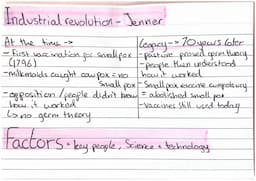 Industrial revolution - Jenner
At the time ->
- First vaccination for smallpox
(1796)
- milkmaids caught cowpox = no
smallpox
- opposition / people didn't know
how it worked
↳ no germ theory
Legacy -> 70 years later
- pasture proved germ theory
- people then understood
how it worked
- Smallpox vaccine compulsory
= abolished small pox
- vaccines still used today
Factors = key people, Science + technology